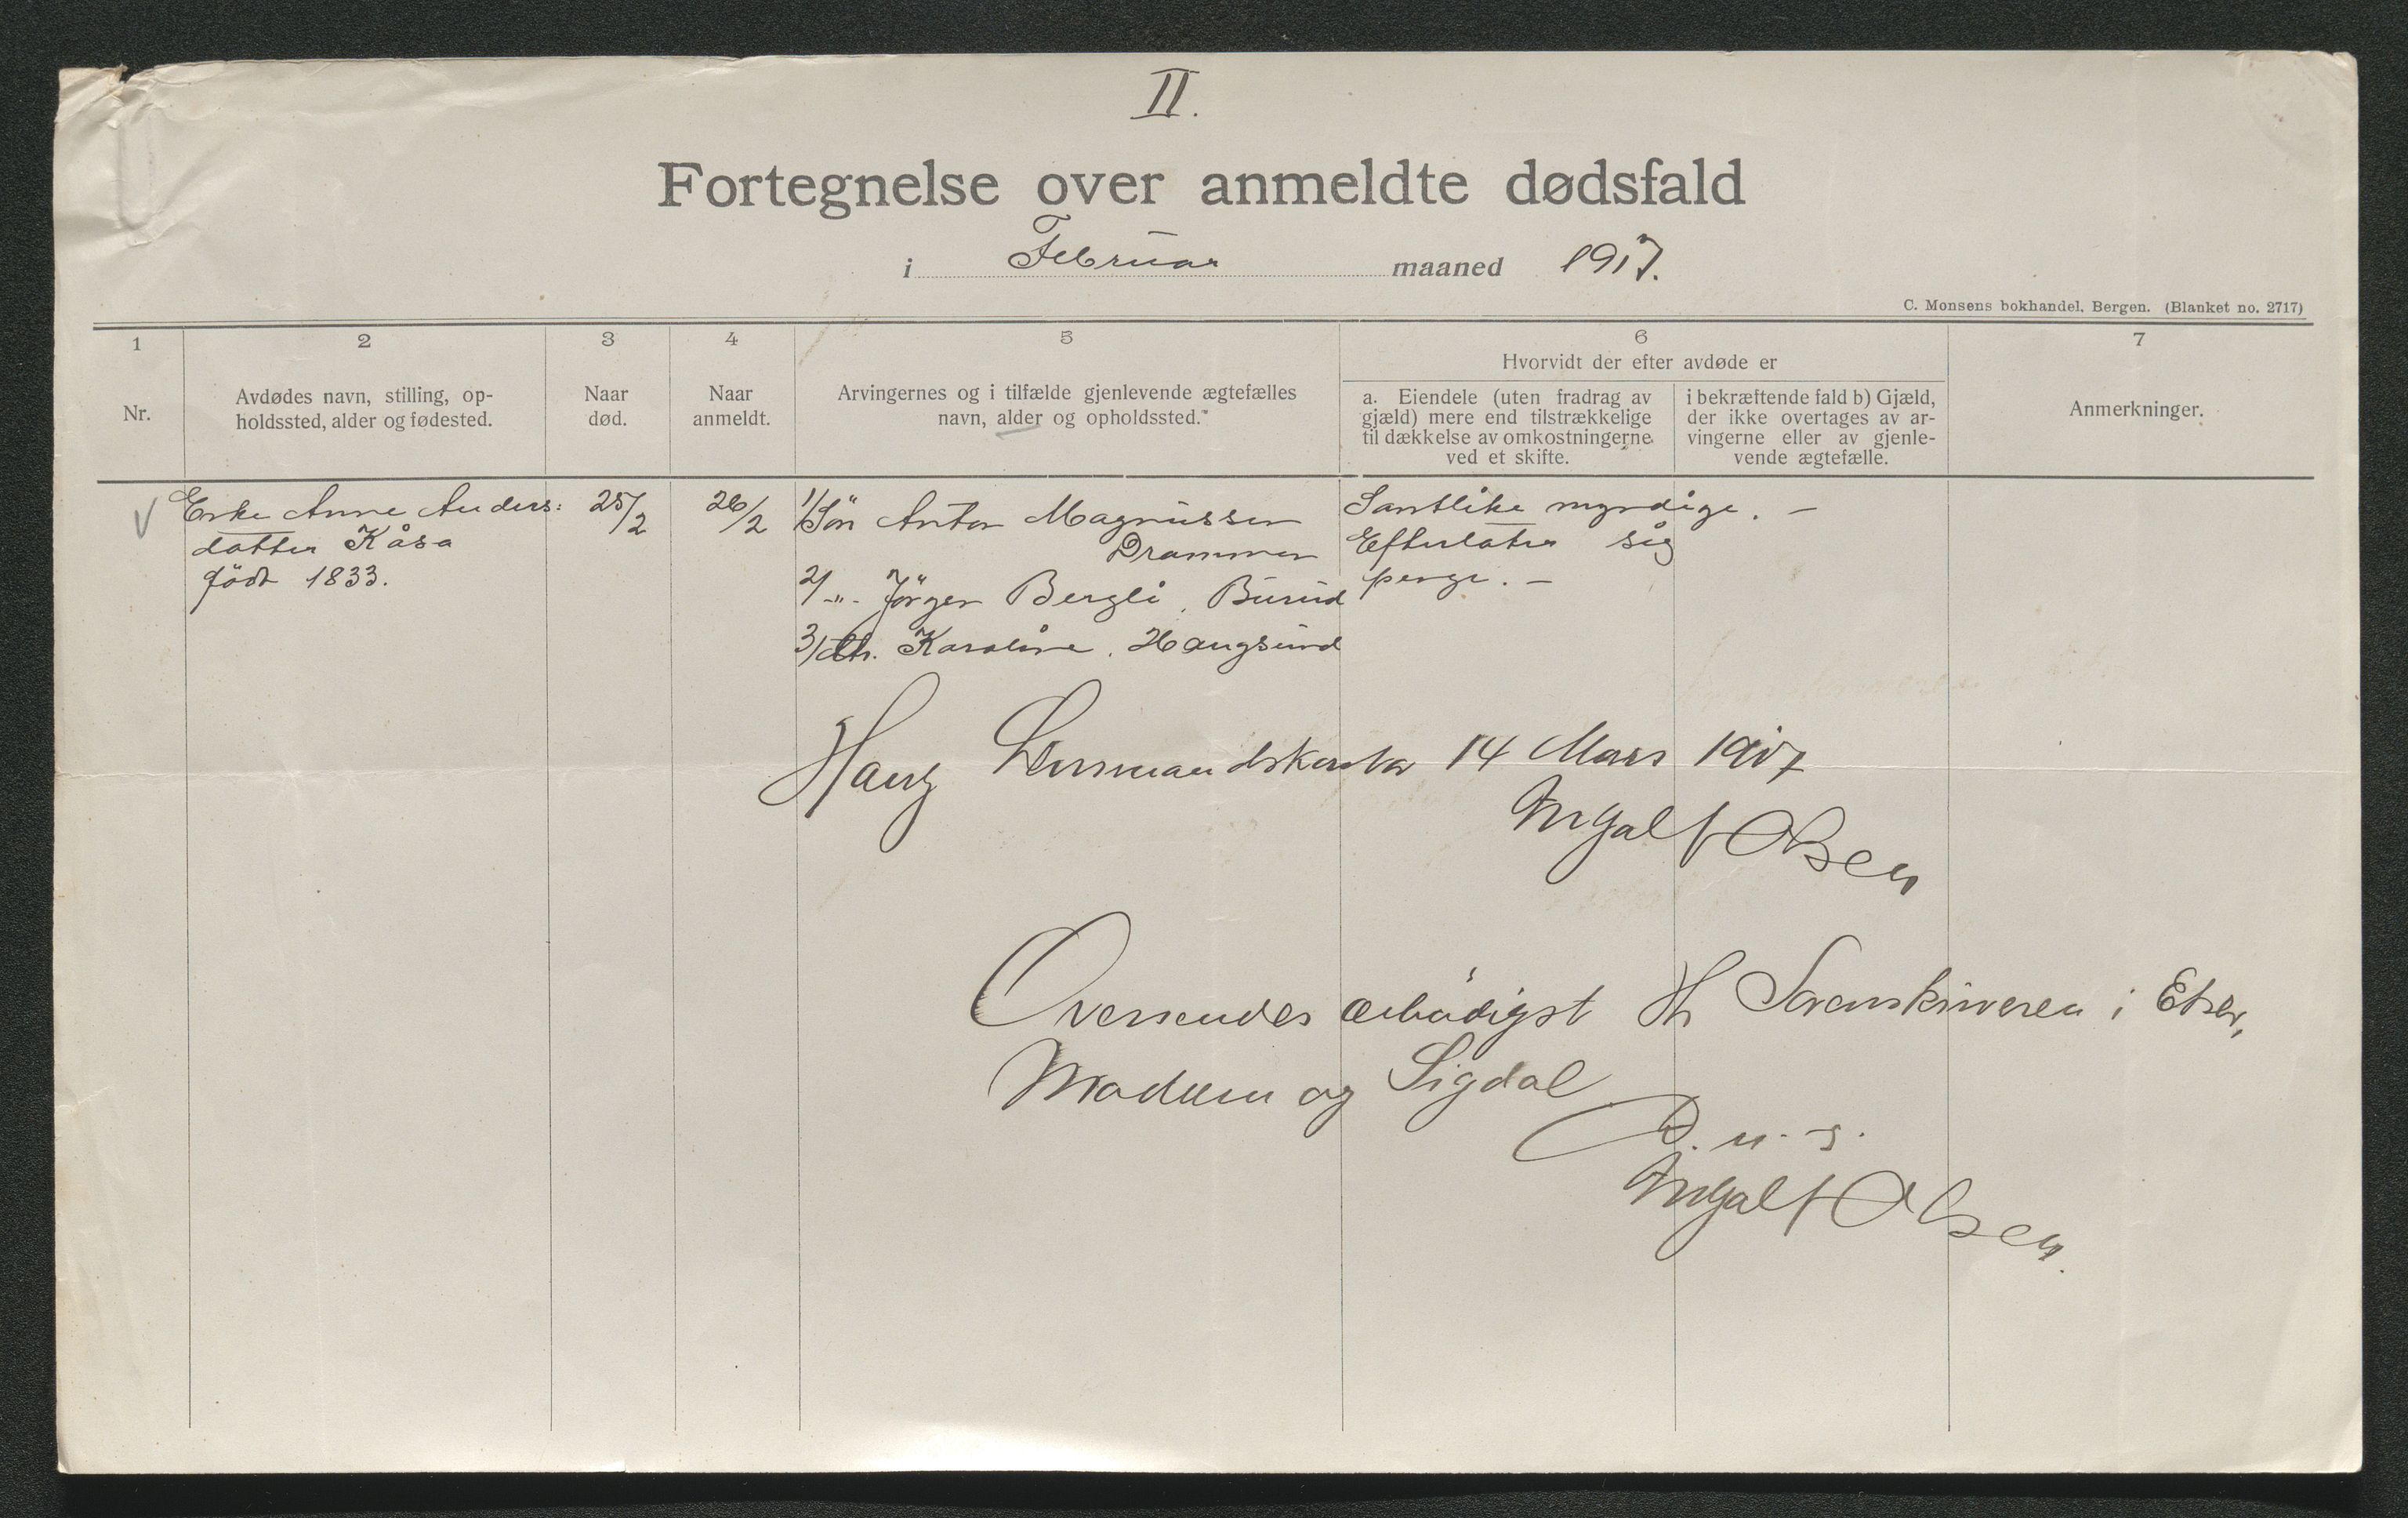 II.
Fortegnelse over anmeldte dødsfald
i Februar maaned 1917.
C. Monsens bokhandel, Bergen. (Blanket no. 2717)
1
2
3
4
5
6
7
Nr.
Avdødes navn, stilling, op-
holdssted, alder og fødested.
Naar
død.
Naar
anmeldt.
Arvingernes og i tilfælde gjenlevende ægtefælles
navn, alder og opholdssted.
Hvorvidt der efter avdøde er
a. Eiendele (uten fradrag av
gjæld) mere end tilstrækkelige
til dækkelse av omkostningerne
ved et skifte.
i bekræftende fald b) Gjæld,
der ikke overtages av ar-
vingerne eller av gjenle-
vende ægtefælle.
Anmerkninger.
V
Enke Anne Anders:
datter Kåsa
född 1833.
25/2
26/2
1/ Sön Anton Magnussen
Drammen
2/ -"- Jörgen Bergli, Burud
3/ dtr. Karoline, Haugsund
Samtlike myndige. -
Efterlater sig
penge. -
Haug Lensmandskontor 14 Mars 1917
Ingolf Olsen
Oversendes ærbödigst Hr Sorenskriveren i Eker,
Modum og Sigdal
D. u. s.
Ingolf Olsen.